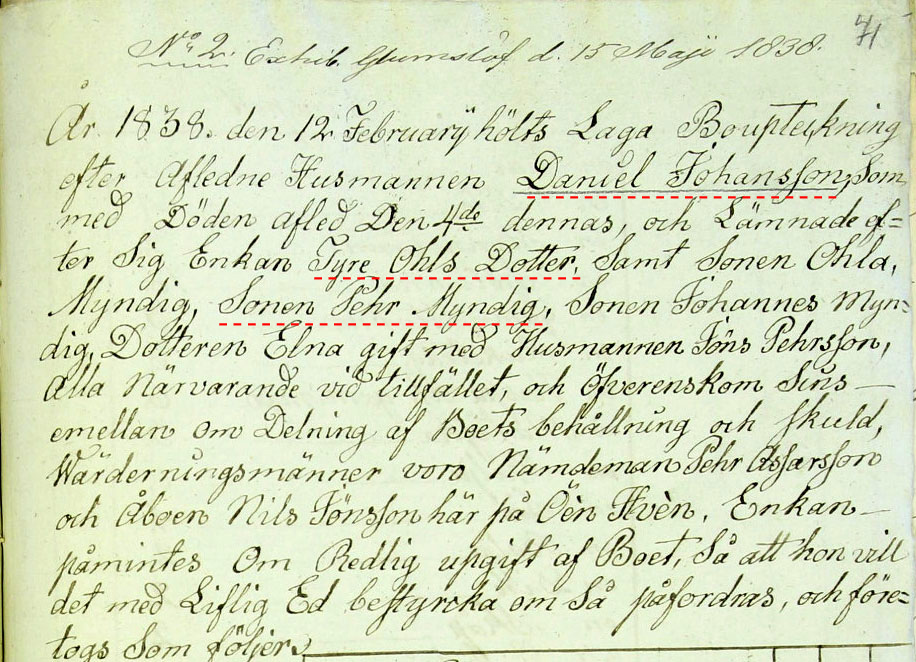 71
No 2. Exhib. Gumslöf d. 15 Maji 1838.
År 1838. den 12 Februarÿ hölts Laga Boupteckning
efter Afledne Husmannen Daniel Johansson, Som
med Döden afled Den 4de dennas, och Lämnade ef=
ter Sig Enkan Tyre Ohls Dotter, Samt Sonen Ohla,
Myndig, Sonen Pehr Myndig, Sonen Johannes Myn=
dig, Dotteren Elna gift med Husmannen Jöns Pehrsson,
Alla Närvarande vid tillfället, och Öfverenskom Sins—
emellan om Delning af Boets behållning och skuld,
Wärderningsmänner voro Nämdeman Pehr Assarsson
och Åboen Nils Jönsson här på Öen Hvèn. Enkan—
påmintes Om Redlig upgift af Boet, Så att hon vill
det med Liflig Ed bestyrcka om Så påfordras, och före=
togs Som följer.